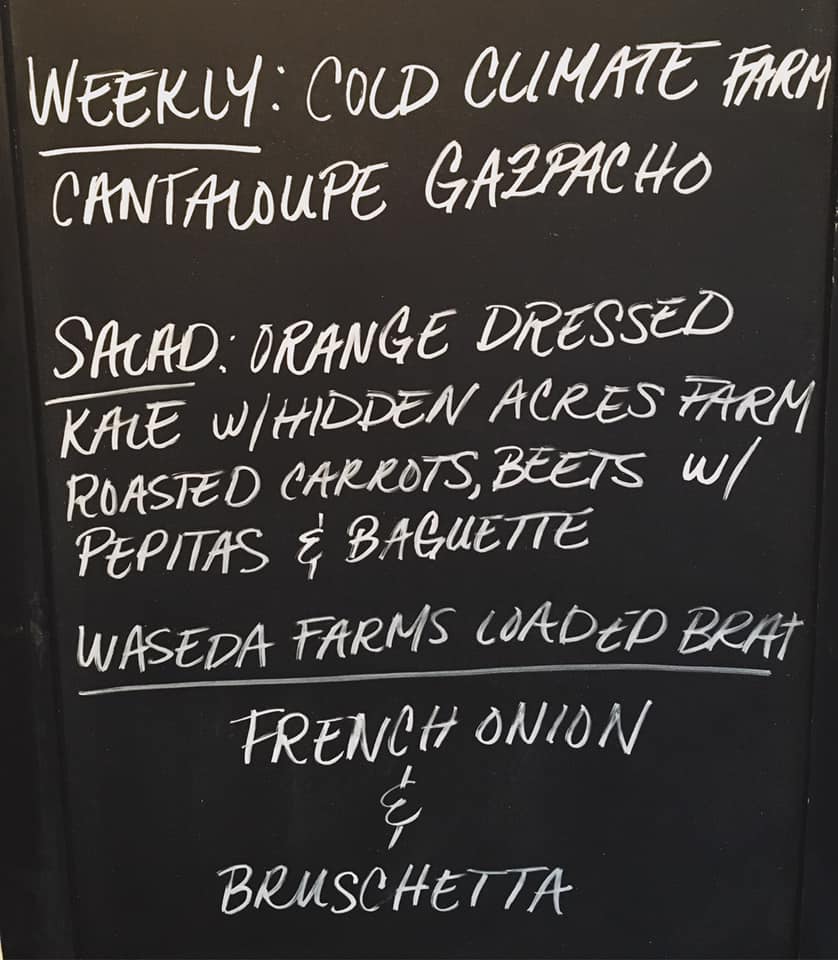 WEEKLY: COLD CLIMATE FARM
CANTALOUPE GAZPACHO
SALAD: ORANGE DRESSED
KALE W/HIDDEN ACRES FARM
ROASTED CARROTS, BEETS W/
PEPITAS & BAGUETTE
WASEDA FARMS LOADED BRAT
FRENCH ONION
&
BRUSCHETTA